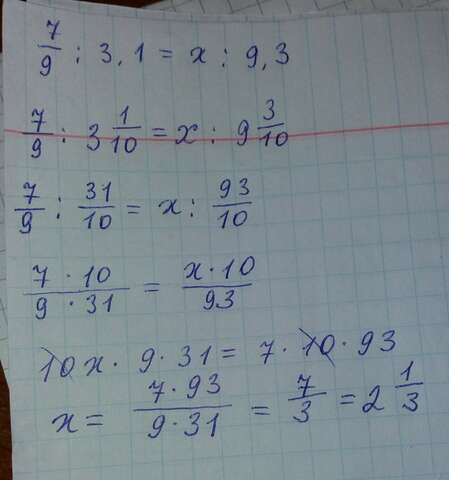 7/9 : 3,1 = x : 9,3
7/9 : 3 1/10 = x : 9 3/10
7/9 : 31/10 = x : 93/10
7·10/9·31 = x·10/93
10x · 9·31 = 7·10·93
x = 7·93/9·31 = 7/3 = 2 1/3